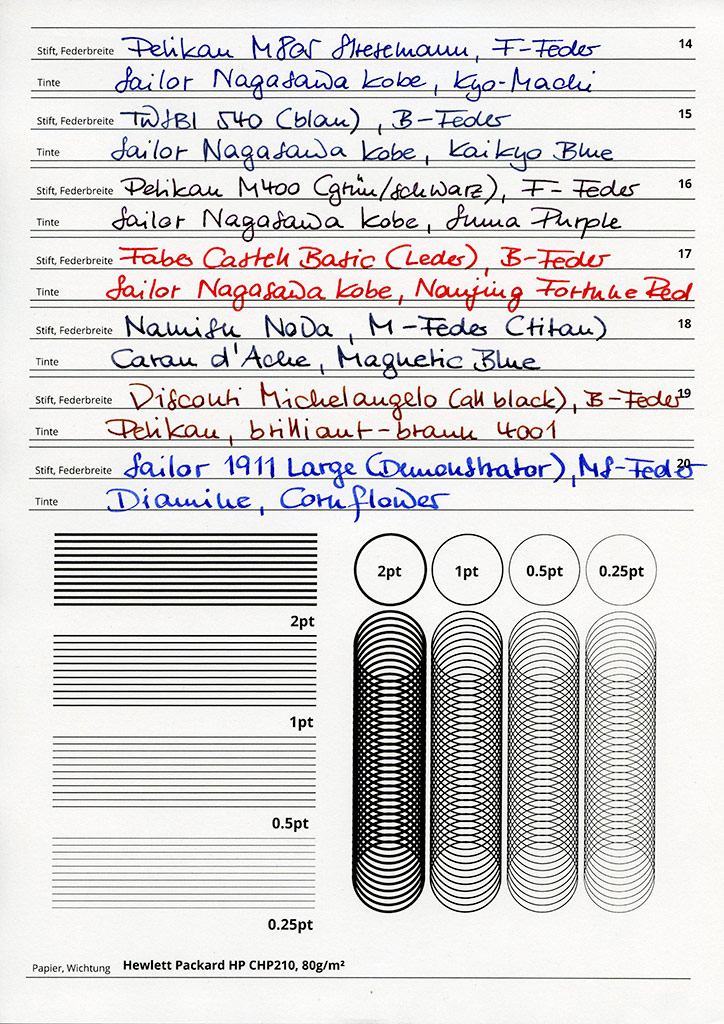 Stift, Federbreite Pelikan M805 Stresemann, F-Feder 14
Tinte Sailor Nagasawa Kobe, Kyo-Machi
Stift, Federbreite TWSBI 540 (blau), B-Feder 15
Tinte Sailor Nagasawa Kobe, Kaikyo Blue
Stift, Federbreite Pelikan M400 (grün/schwarz), F-Feder 16
Tinte Sailor Nagasawa Kobe, Suma Purple
Stift, Federbreite Faber Castell Basic (Leder), B-Feder 17
Tinte Sailor Nagasawa Kobe, Nanjing Fortune Red
Stift, Federbreite Namisu Nova, M-Feder (titan) 18
Tinte Caran d'Ache, Magnetic Blue
Stift, Federbreite Visconti Michelangelo (all black), B-Feder 19
Tinte Pelikan, brilliant-braun 4001
Stift, Federbreite Sailor 1911 Large (Demonstrator), MS-Feder 20
Tinte Diamine, Cornflower
2pt 1pt 0.5pt 0.25pt
2pt
1pt
0.5pt
0.25pt
Papier, Wichtung Hewlett Packard HP CHP210, 80g/m²